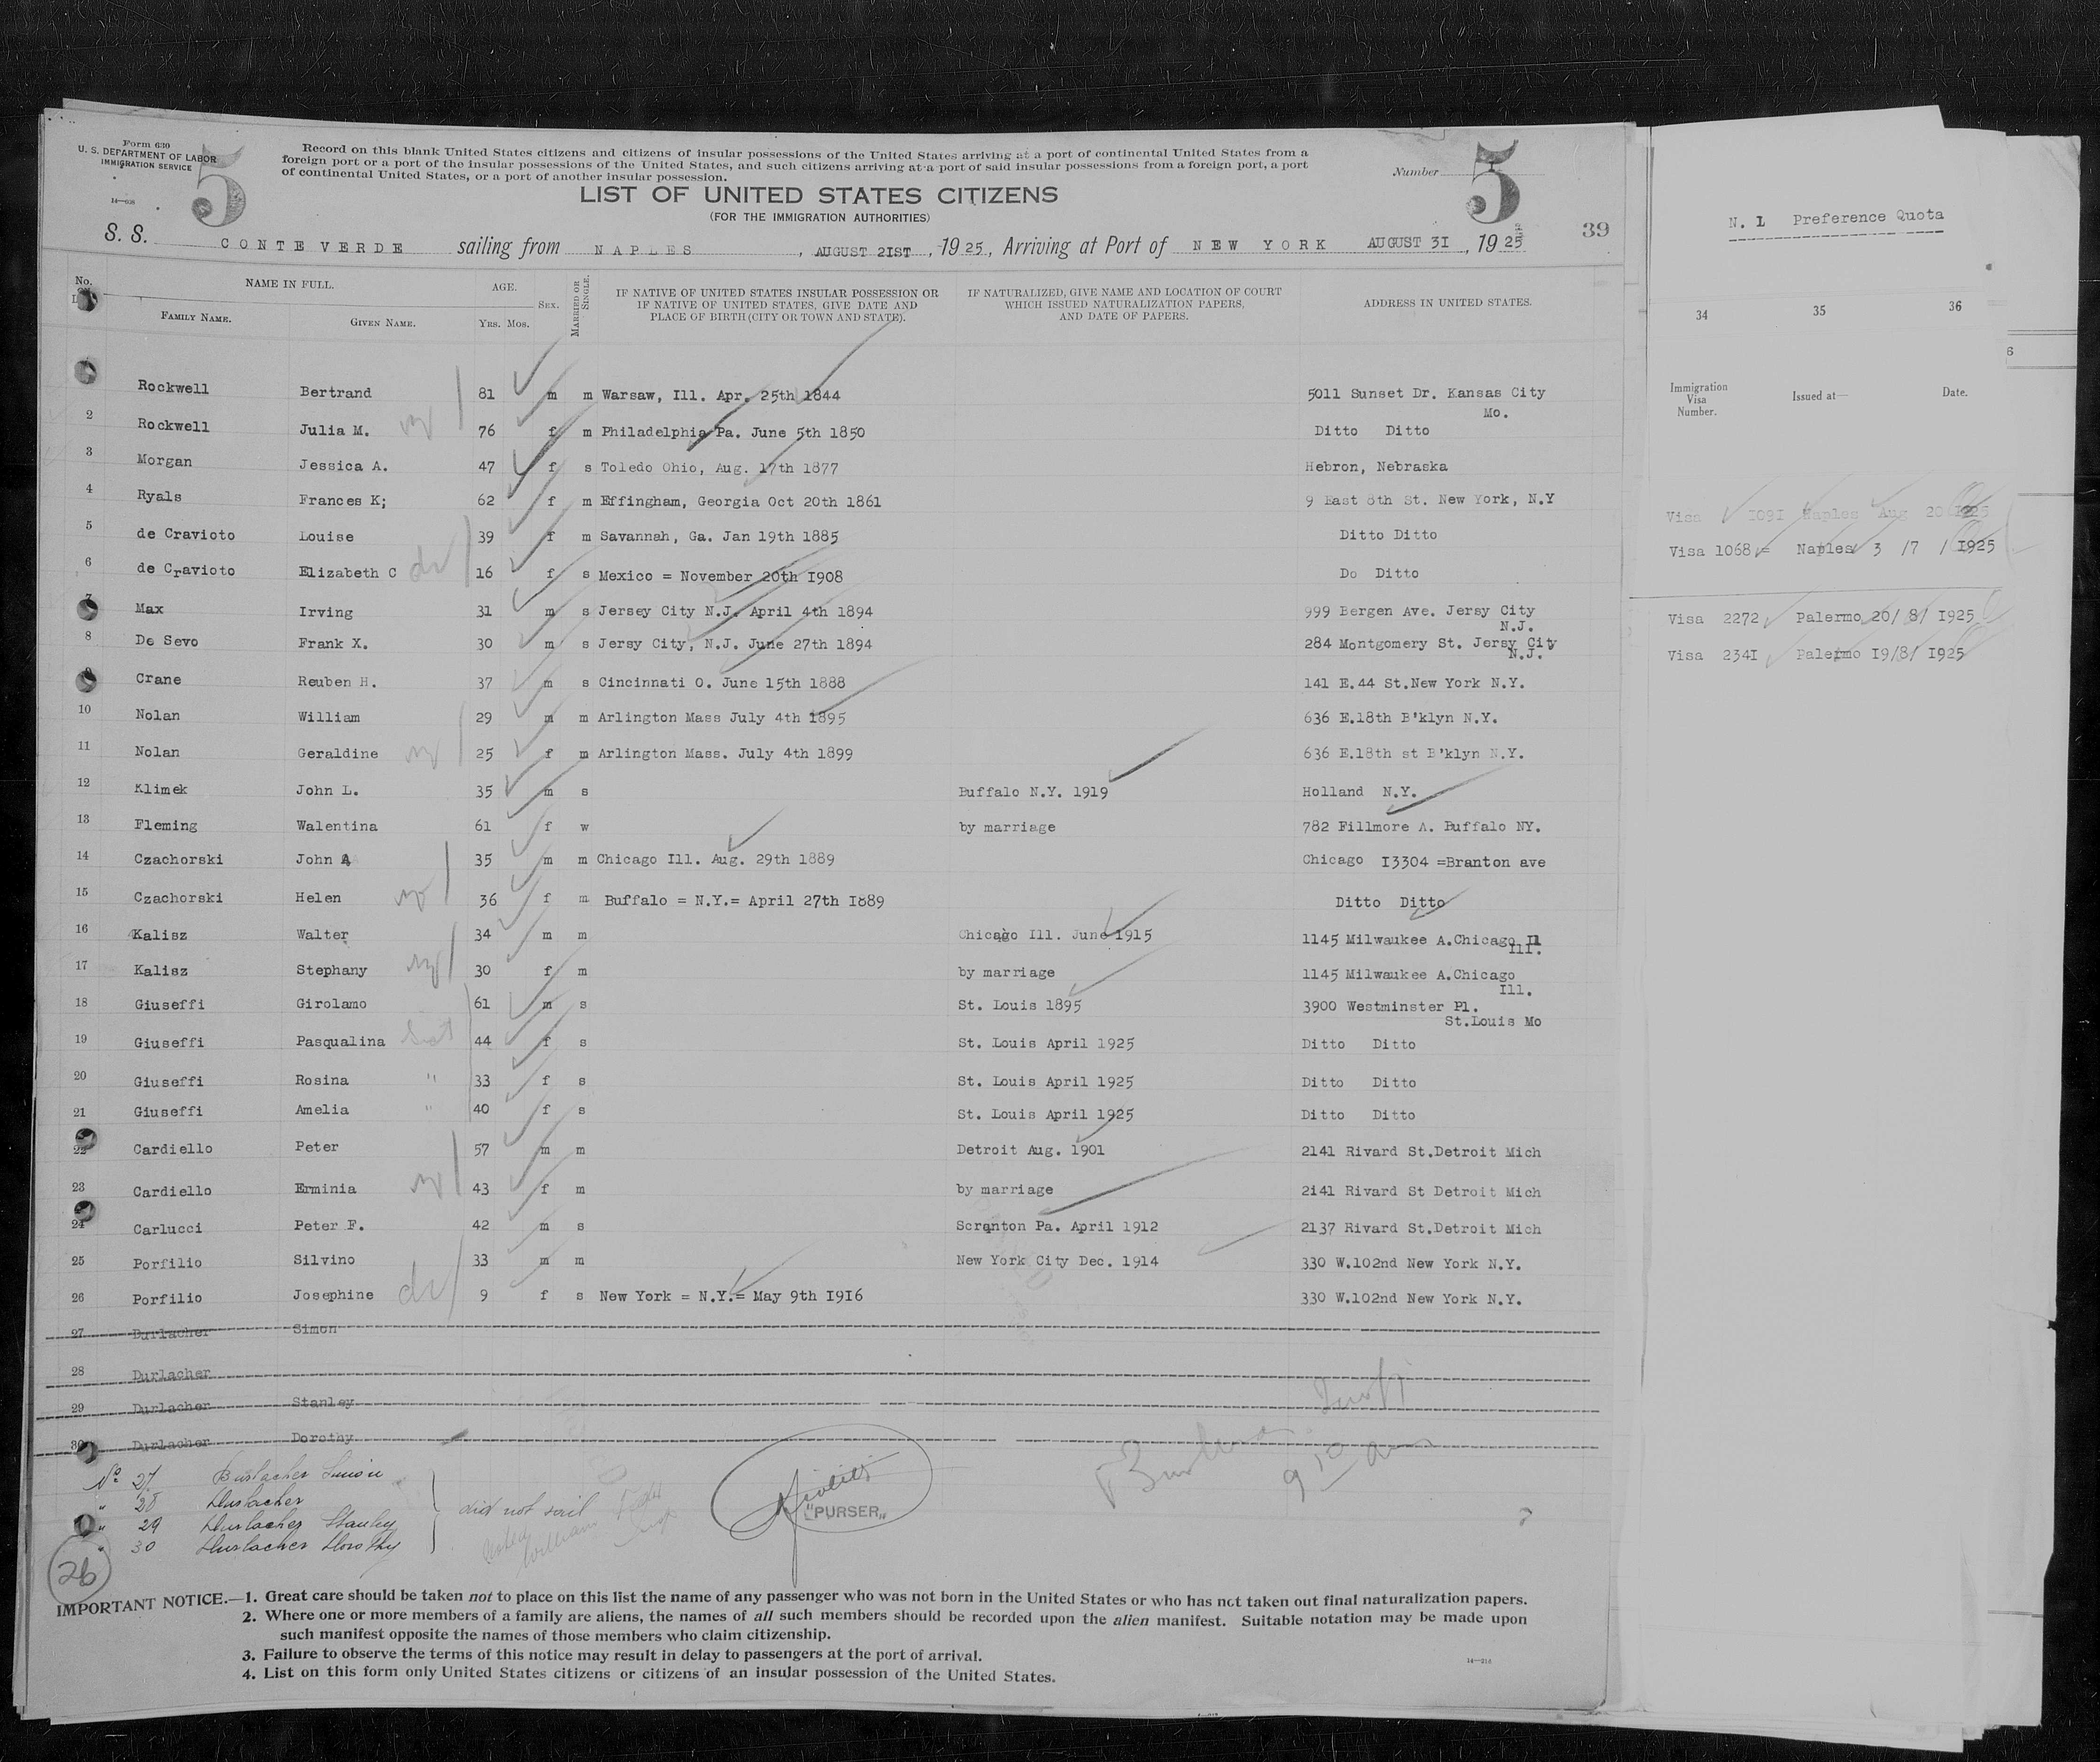 Form 630
U. S. DEPARTMENT OF LABOR
IMMIGRATION SERVICE
14—608
5
Record on this blank United States citizens and citizens of insular possessions of the United States arriving at a port of continental United States from a
foreign port or a port of the insular possessions of the United States, and such citizens arriving at a port of said insular possessions from a foreign port, a port
of continental United States, or a port of another insular possession.
LIST OF UNITED STATES CITIZENS
(FOR THE IMMIGRATION AUTHORITIES)
Number 5
39
S. S. CONTE VERDE sailing from NAPLES, AUGUST 21ST, 1925, Arriving at Port of NEW YORK AUGUST 31, 1925
No. NAME IN FULL. AGE. SEX. MARRIED OR SINGLE. IF NATIVE OF UNITED STATES INSULAR POSSESSION OR IF NATIVE OF UNITED STATES, GIVE DATE AND PLACE OF BIRTH (CITY OR TOWN AND STATE). IF NATURALIZED, GIVE NAME AND LOCATION OF COURT WHICH ISSUED NATURALIZATION PAPERS, AND DATE OF PAPERS. ADDRESS IN UNITED STATES.
FAMILY NAME. GIVEN NAME. YRS. MOS.
Rockwell Bertrand 81 m m Warsaw, Ill. Apr. 25th 1844 5011 Sunset Dr. Kansas City Mo.
2 Rockwell Julia M. 76 f m Philadelphia Pa. June 5th 1850 Ditto Ditto
3 Morgan Jessica A. 47 f s Toledo Ohio, Aug. 17th 1877 Hebron, Nebraska
4 Ryals Frances K; 62 f m Effingham, Georgia Oct 20th 1861 9 East 8th St. New York, N.Y
5 de Cravioto Louise 39 f m Savannah, Ga. Jan 19th 1885 Ditto Ditto
6 de Cravioto Elizabeth C 16 f s Mexico = November 20th I908 Do Ditto
7 Max Irving 31 m s Jersey City N.J. April 4th 1894 999 Bergen Ave. Jersy City N.J.
8 De Sevo Frank X. 30 m s Jersy City, N.J. June 27th 1894 284 Montgomery St. Jersy City N.J.
9 Crane Reuben H. 37 m s Cincinnati O. June 15th 1888 141 E.44 St.New York N.Y.
10 Nolan William 29 m m Arlington Mass July 4th 1895 636 E.18th B'klyn N.Y.
11 Nolan Geraldine 25 f m Arlington Mass. July 4th 1899 636 E.18th st B'klyn N.Y.
12 Klimek John L. 35 m s Buffalo N.Y. 1919 Holland N.Y.
13 Fleming Walentina 61 f w by marriage 782 Fillmore A. Buffalo NY.
14 Czachorski John A 35 m m Chicago Ill. Aug. 29th 1889 Chicago I3304 =Branton ave
15 Czachorski Helen 36 f m Buffalo = N.Y.= April 27th I889 Ditto Ditto
16 Kalisz Walter 34 m m Chicago Ill. June 1915 1145 Milwaukee A.Chicago Il Ill.
17 Kalisz Stephany 30 f m by marriage 1145 Milwaukee A.Chicago Ill.
18 Giuseffi Girolamo 61 m s St. Louis 1895 3900 Westminster Pl. St.Louis Mo
19 Giuseffi Pasqualina 44 f s St. Louis April 1925 Ditto Ditto
20 Giuseffi Rosina " 33 f s St. Louis April 1925 Ditto Ditto
21 Giuseffi Amelia " 40 f s St. Louis April 1925 Ditto Ditto
22 Cardiello Peter 57 m m Detroit Aug. 1901 2141 Rivard St.Detroit Mich
23 Cardiello Erminia 43 f m by marriage 2141 Rivard St Detroit Mich
24 Carlucci Peter F. 42 m s Scranton Pa. April 1912 2137 Rivard St.Detroit Mich
25 Porfilio Silvino 33 m m New York City Dec. 1914 330 W.102nd New York N.Y.
26 Porfilio Josephine 9 f s New York = N.Y.= May 9th I9I6 330 W.102nd New York N.Y.
27 Durlacher Simon
28 Durlacher
29 Durlacher Stanley
30 Durlacher Dorothy
No 27 Durlacher Simon
" 28 Durlacher
" 29 Durlacher Stanley
" 30 Durlacher Dorothy
did not sail
"PURSER"
26
IMPORTANT NOTICE.—1. Great care should be taken not to place on this list the name of any passenger who was not born in the United States or who has not taken out final naturalization papers.
2. Where one or more members of a family are aliens, the names of all such members should be recorded upon the alien manifest. Suitable notation may be made upon
such manifest opposite the names of those members who claim citizenship.
3. Failure to observe the terms of this notice may result in delay to passengers at the port of arrival.
4. List on this form only United States citizens or citizens of an insular possession of the United States.
14—216
N. L Preference Quota
34 35 36
6
Immigration Visa Number. Issued at— Date.
Visa I09I Naples Aug 20 I925
Visa 1068 = Naples 3 /7 / I925
Visa 2272 Palermo 20/ 8/ I925
Visa 234I Palermo I9/8/ I925